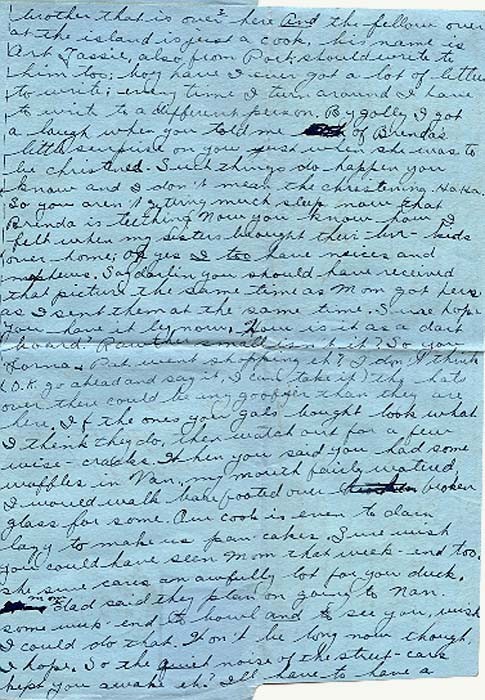 brother that is over here and the fellow over
at the island is just a cook, his name is
Art Tassie, also from Port. should write to
him too; boy have I ever got a lot of letters
to write; every time I turn around I have
to write to a different person. By golly I got
a laugh when you told me of Brenda's
little surprise on you just when she was to
be christened. Such things do happen you
know and I don't mean the christening. Ha. Ha.
So you aren't getting much sleep now that
Brenda is teething. Now you know how I
felt when my sisters brought their kids
over home; Oh yes I too have neices and
nephews. Say darlin you should have received
that picture the same time as Mom got hers
as I sent them at the same time. I sure hope
you have it by now. How is it as a dart
board? Rawther small isn't it? So you
Lorna & Pat went shopping eh? I don't think
(O.K. go ahead and say it, I can take it) the hats
over there could be any goofyer than they are
here. If the ones you gals bought look what
I think they do, then watch out for a few
wise-cracks. When you said you had some
waffles in Van., my mouth fairly watred,
I would walk barefooted over broken
glass for some. Our cook is even to darn
lazy to make us pan-cakes. I sure wish
you could have seen Mom that week-end too,
she sure cares an awfully lot for you duck.
mom & Dad said they plan on going to Van.
some week-end to bowl and to see you, wish
I could do that. Won't be long now though.
I hope. So the quiet noise of the street-cars
kept you awake eh? I'll have to have a